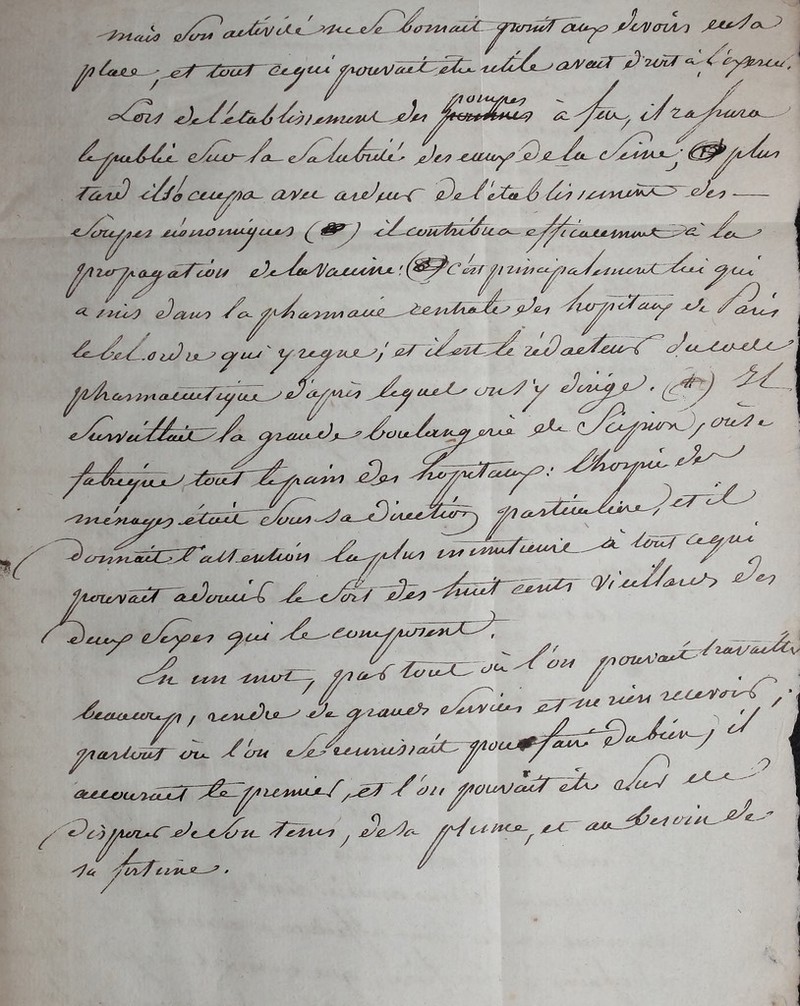 mais son activité ne se bornait point aux devoirs de sa
place, et tout ce qui pouvait etre utile avait droit à l'exercer.
Lors de l'établissement des pompes à feu, il rassura
le public sur la salubrité des eaux de la Seine; plus
tard il s'ocupa avec ardeur de l'etablissement des
soupes économiques ( ) il contribua efficacement à la
propagation de la vaccine: c'est principalement lui qui
a mis dans la pharmacie centrale des hopitaux de Paris
le bel ordre qui y regne; et il est le rédacteur du code
pharmaceutique d'après lequel on s'y dirige. ( ) Il
surveillait la grande boulangerie de Scipion, où se
fabrique tout le pain des hopitaux: l'hospice des
ménages était sous sa direction particuliere, et il
donnait l'attention la plus minutieuse à tout ce qui
pouvait adoucir le sort des huit cents vieillards des
deux sexes qui le composent.
En un mot, par tout où l'on pouvait travailler
beaucoup, rendre de grands services et ne rien recevoir;
partout où l'on se réunissait pour faire du bien, il
accourait le premier, et l'on pouvait etre sur de
disposer de son tems, de sa plume, et au besoin de
sa fortune.